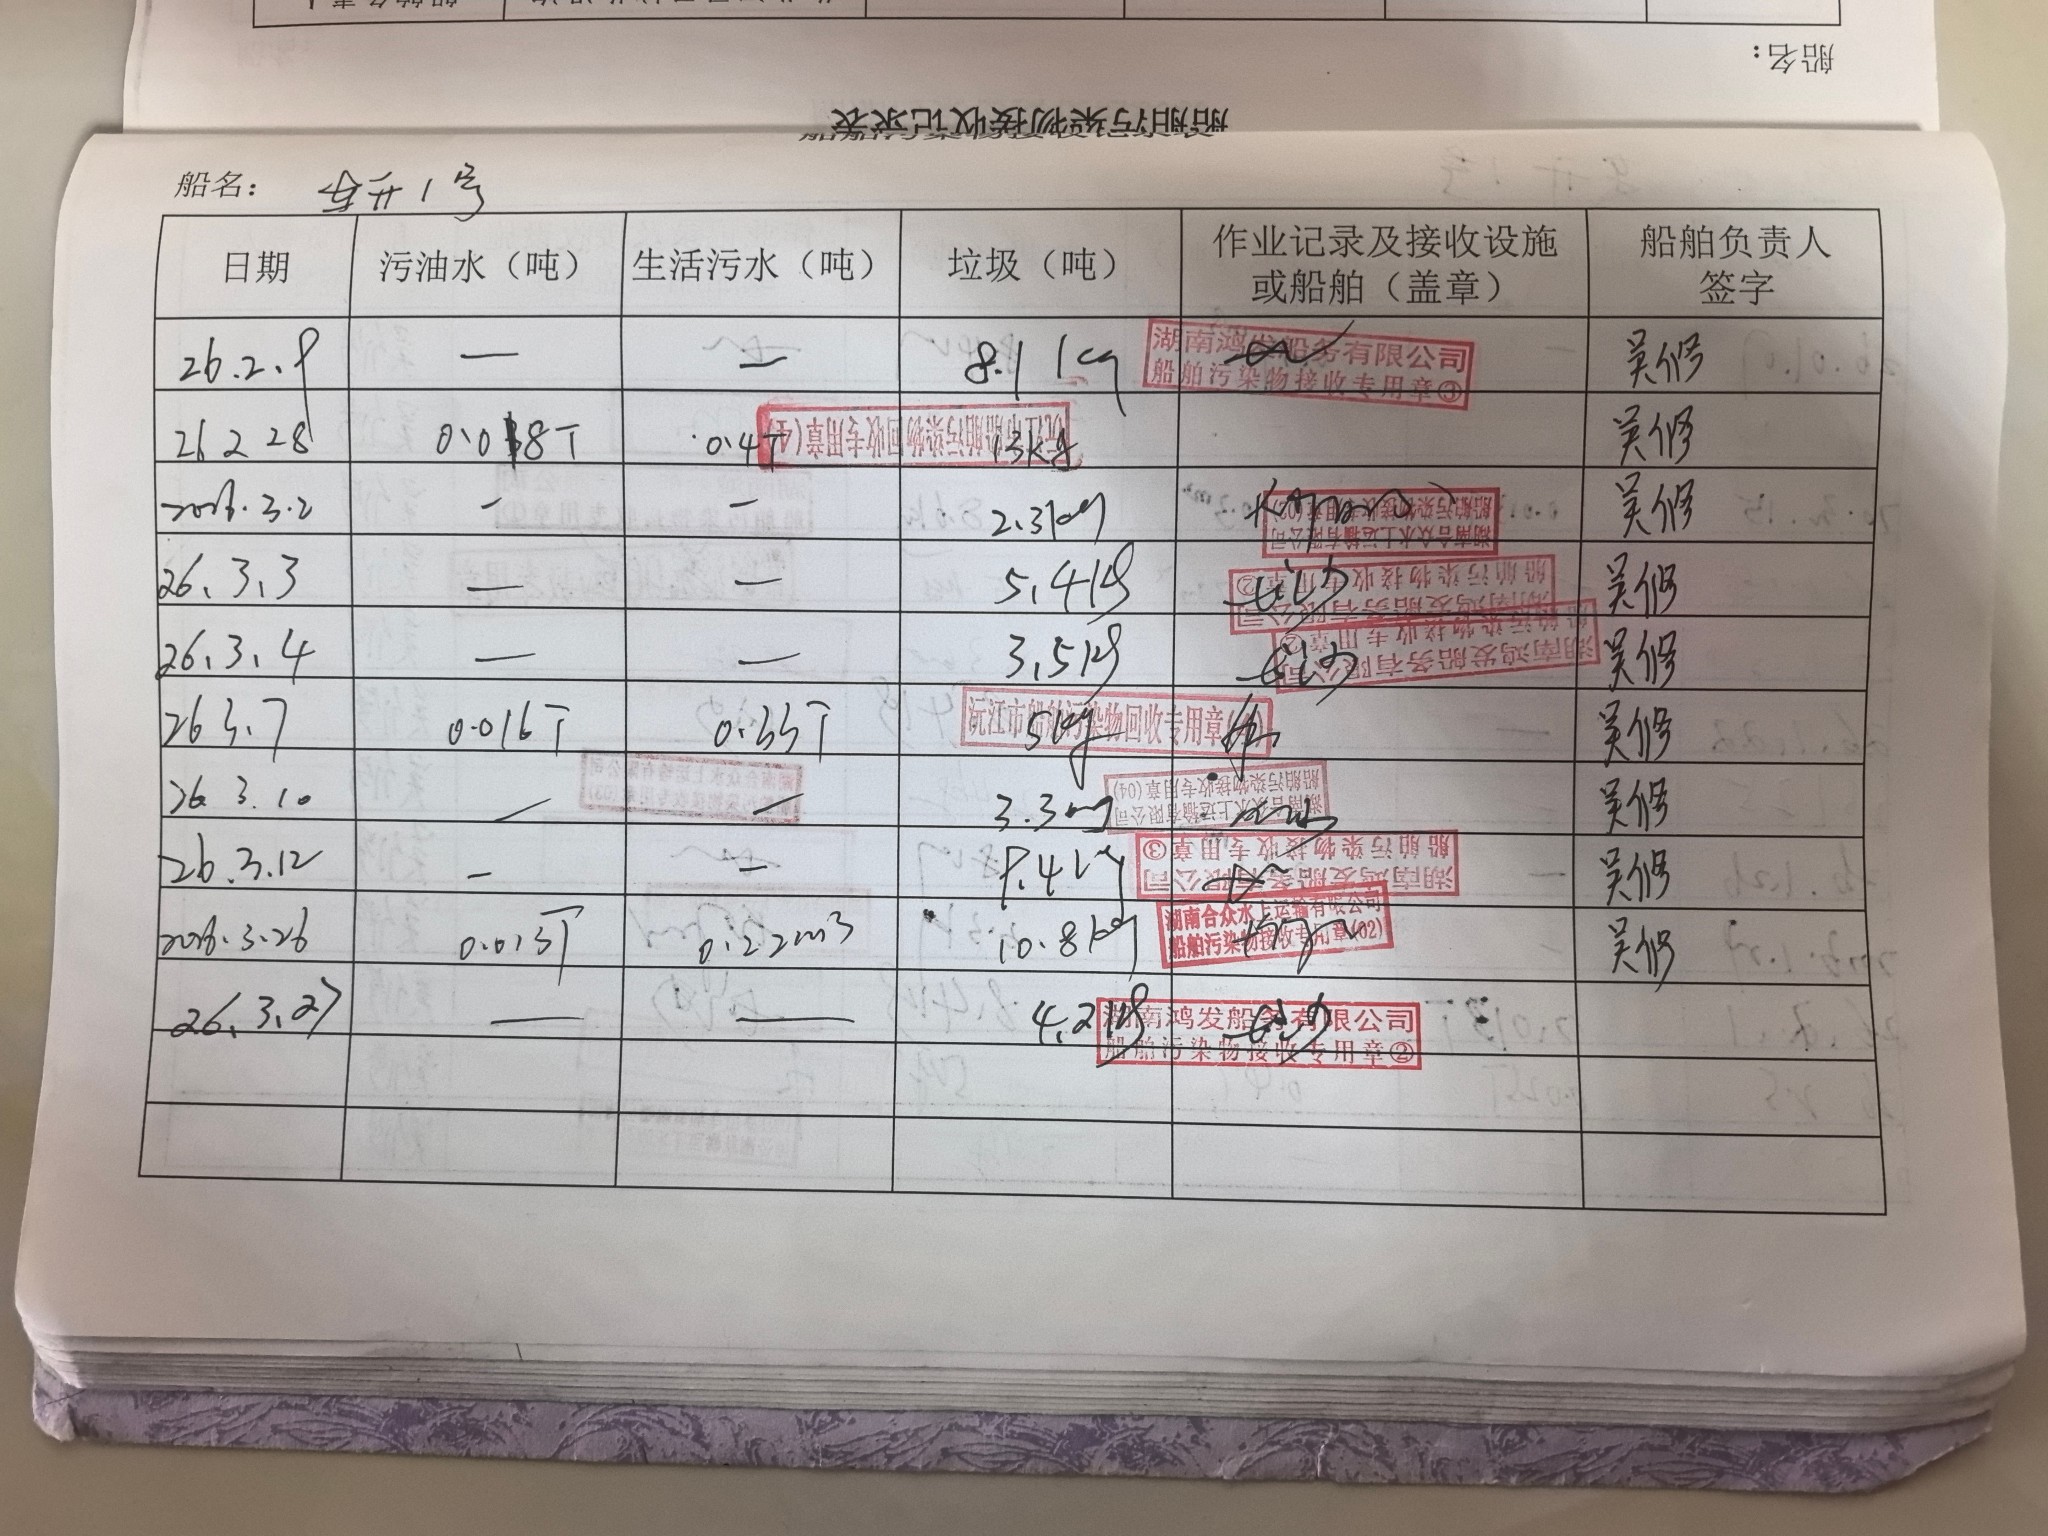 船名：
船舶污染物接收记录表
船名： 1号
日期 污油水（吨） 生活污水（吨） 垃圾（吨） 作业记录及接收设施或船舶（盖章） 船舶负责人签字
26.2.9 — — 8.1kg 湖南鸿发船务有限公司 船舶污染物接收专用章③ 吴修
26 2 28 0.018T 0.4T 13kg 沅江市船舶污染物回收专用章(4) 吴修
2026.3.2 — — 2.3kg 湖南合众水上运输有限公司 船舶污染物接收专用章(02) 吴修
26.3.3 — — 5.4kg 湖南鸿发船务有限公司 船舶污染物接收专用章② 吴修
26.3.4 — — 3.5kg 湖南鸿发船务有限公司 船舶污染物接收专用章② 吴修
26 3.7 0.016T 0.35T 5kg 沅江市船舶污染物回收专用章 吴修
26.3.10 — — 3.3kg 湖南合众水上运输有限公司 船舶污染物接收专用章(04) 吴修
26.3.12 — — 9.4kg 湖南鸿发船务有限公司 船舶污染物接收专用章③ 吴修
2026.3.26 0.013T 0.22m3 10.8kg 湖南合众水上运输有限公司 船舶污染物接收专用章(02) 吴修
26.3.27 — — 4.2kg 湖南鸿发船务有限公司 船舶污染物接收专用章②